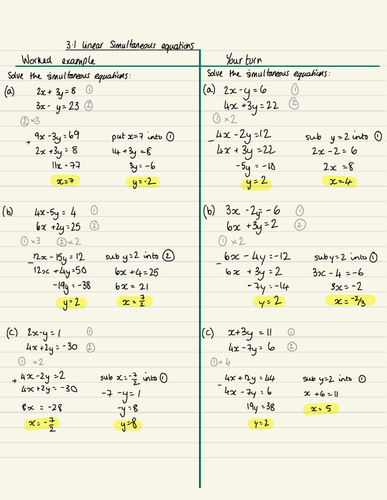 3.1 linear simultaneous equations
Worked example
Solve the simultaneous equations:
(a) 2x + 3y = 8 ①
3x - y = 23 ②
② ×3
+ 9x - 3y = 69
2x + 3y = 8
11x = 77
x = 7
put x=7 into ①
14 + 3y = 8
3y = -6
y = -2
(b) 4x - 5y = 4 ①
6x + 2y = 25 ②
① ×3 ② ×2
- 12x - 15y = 12
12x + 4y = 50
-19y = -38
y = 2
sub y=2 into ②
6x + 4 = 25
6x = 21
x = 7/2
(c) 2x - y = 1 ①
4x + 2y = -30 ②
① ×2
+ 4x - 2y = 2
4x + 2y = -30
8x = -28
x = -7/2
sub x=-7/2 into ①
-7 - y = 1
-y = 8
y = 8
Your turn
Solve the simultaneous equations:
(a) 2x - y = 6 ①
4x + 3y = 22 ②
① ×2
- 4x - 2y = 12
4x + 3y = 22
-5y = -10
y = 2
sub y=2 into ①
2x - 2 = 6
2x = 8
x = 4
(b) 3x - 2y = -6 ①
6x + 3y = 2 ②
① ×2
- 6x - 4y = -12
6x + 3y = 2
-7y = -14
y = 2
sub y=2 into ①
3x - 4 = -6
3x = -2
x = -2/3
(c) x + 3y = 11 ①
4x - 7y = 6 ②
① ×4
- 4x + 12y = 44
4x - 7y = 6
19y = 38
y = 2
sub y=2 into ①
x + 6 = 11
x = 5